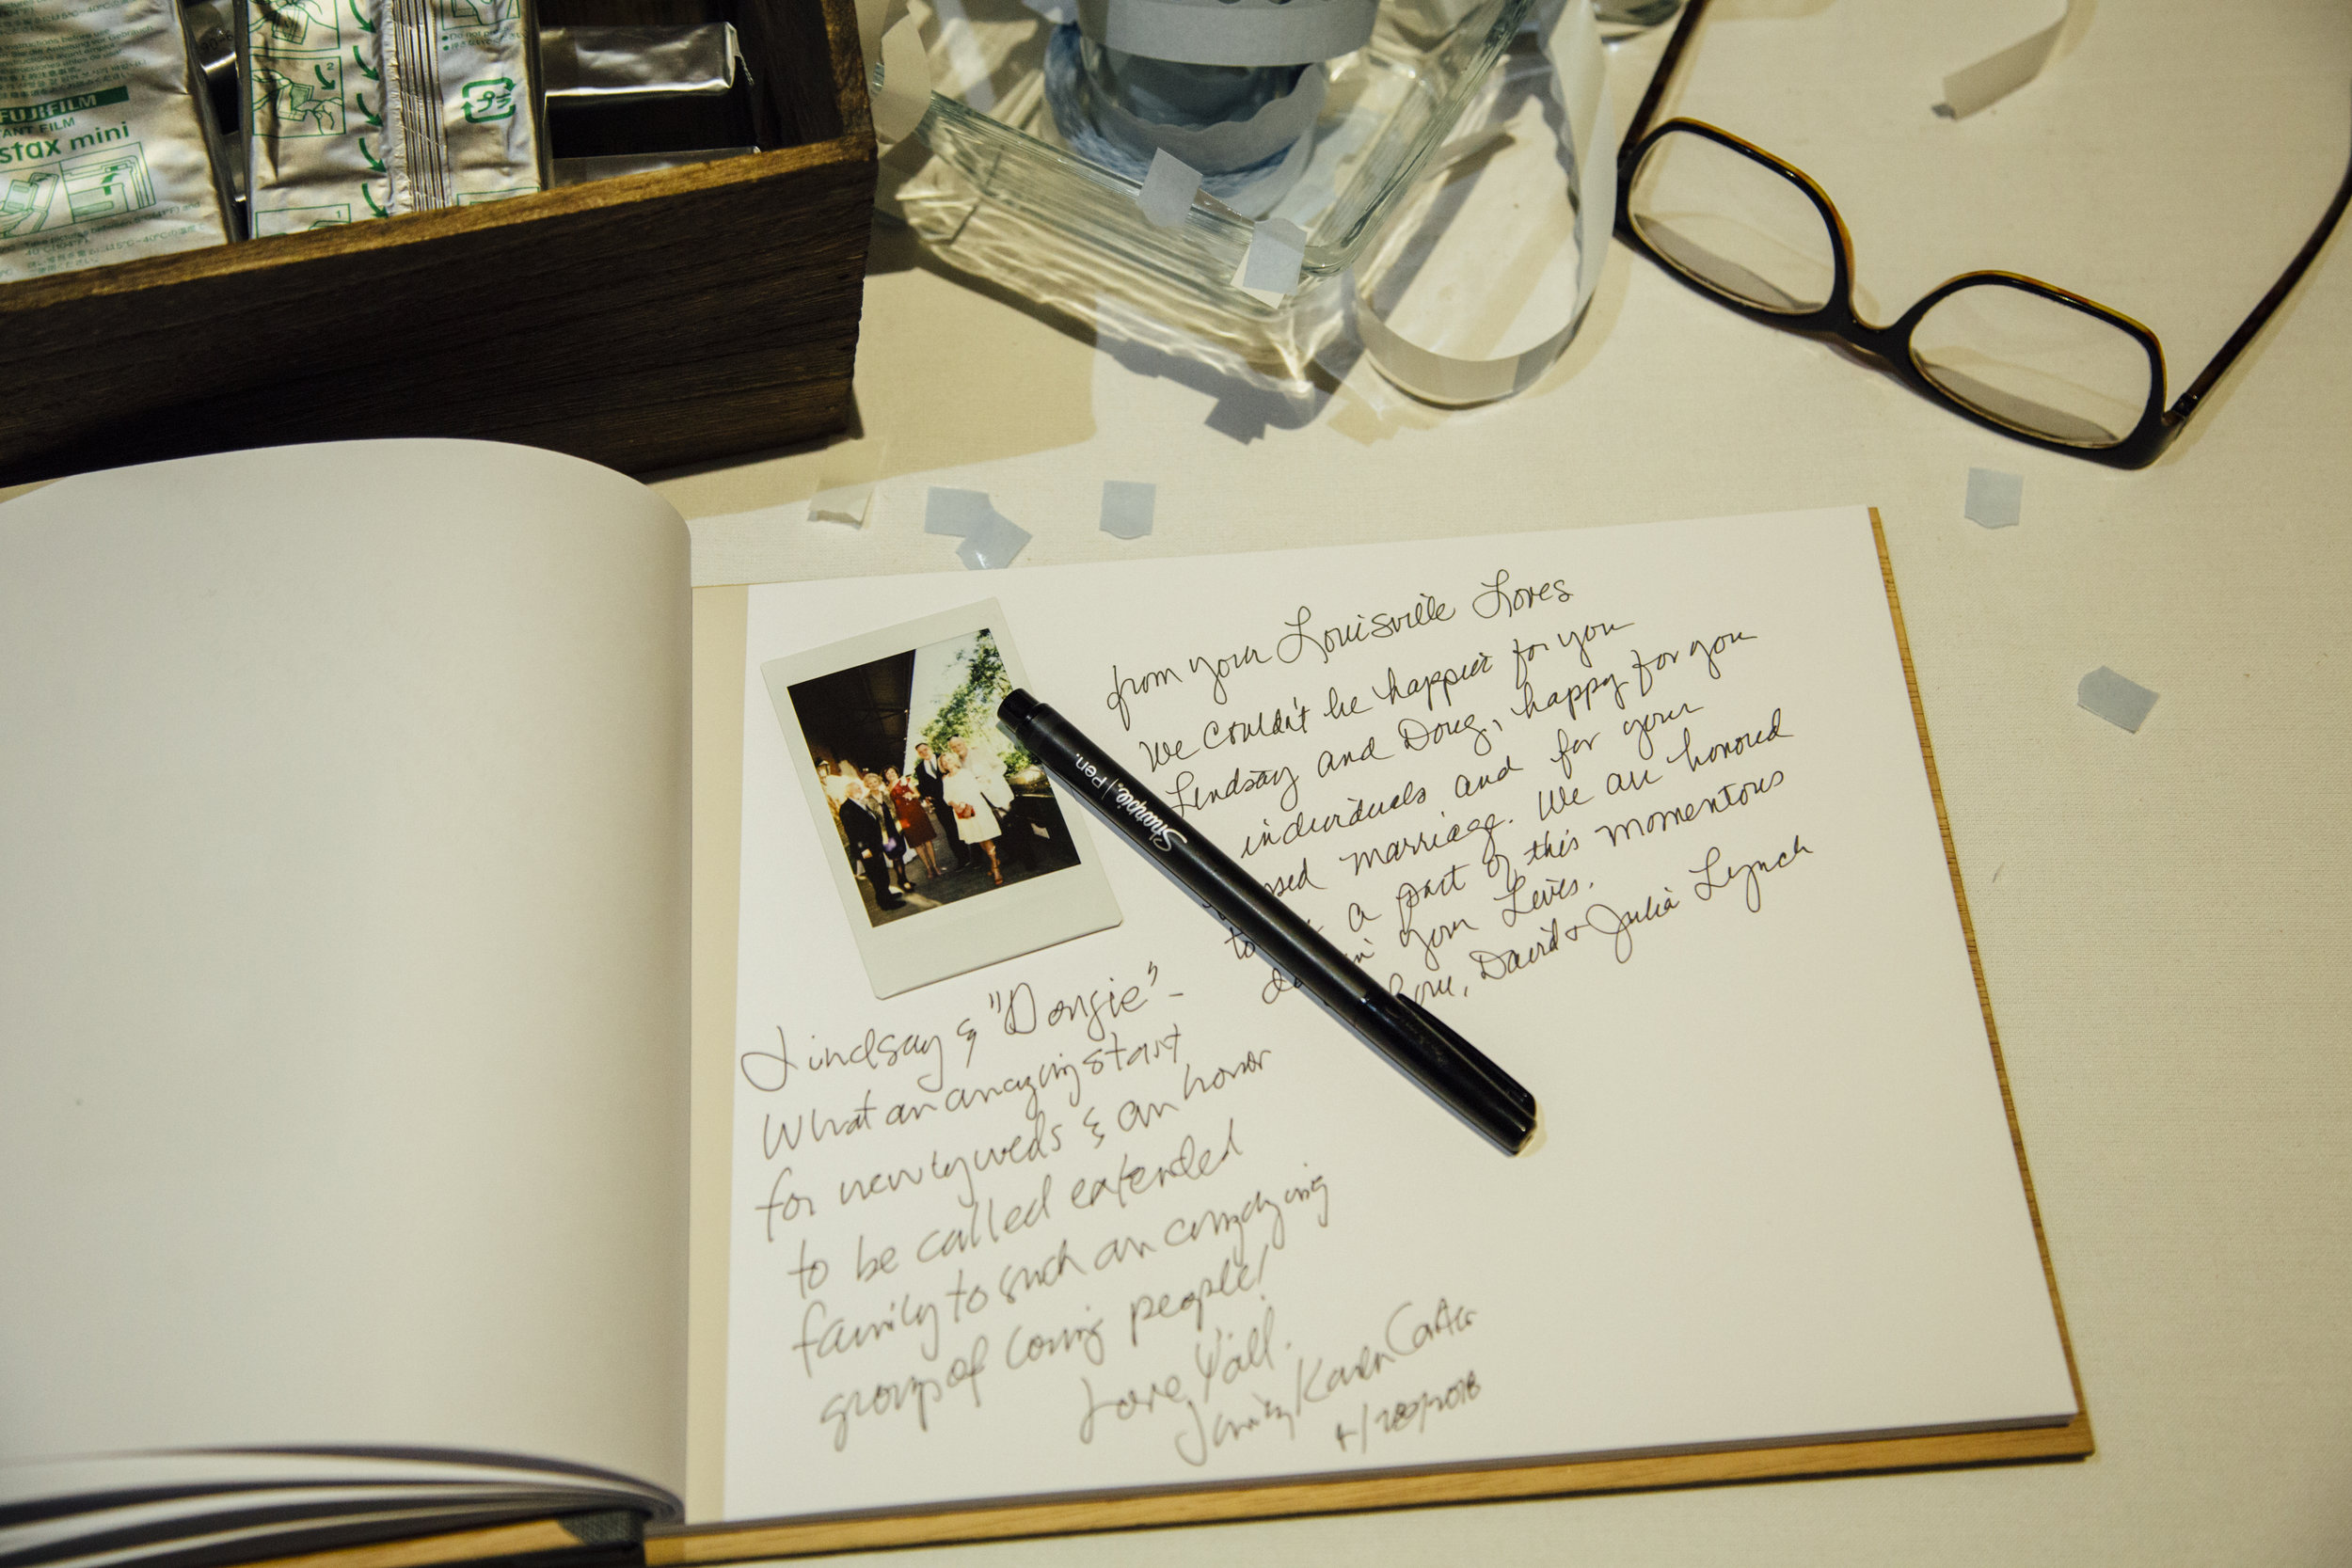 FUJIFILM
mini
from your Louisville Loves
We couldn't be happier for you
Lindsay and Doug, happy for you
individuals and for your
marriage. We are honored
to a part of this momentous
in your Lives.
Love, David & Julia Lynch
Sharpie. Pen.
Lindsay & "Dougie" -
What an amazing start
for newlyweds & an honor
to be called extended
family to such an amazing
group of loving people!
Love, Y'all.
Karen Carter
4/28/2018